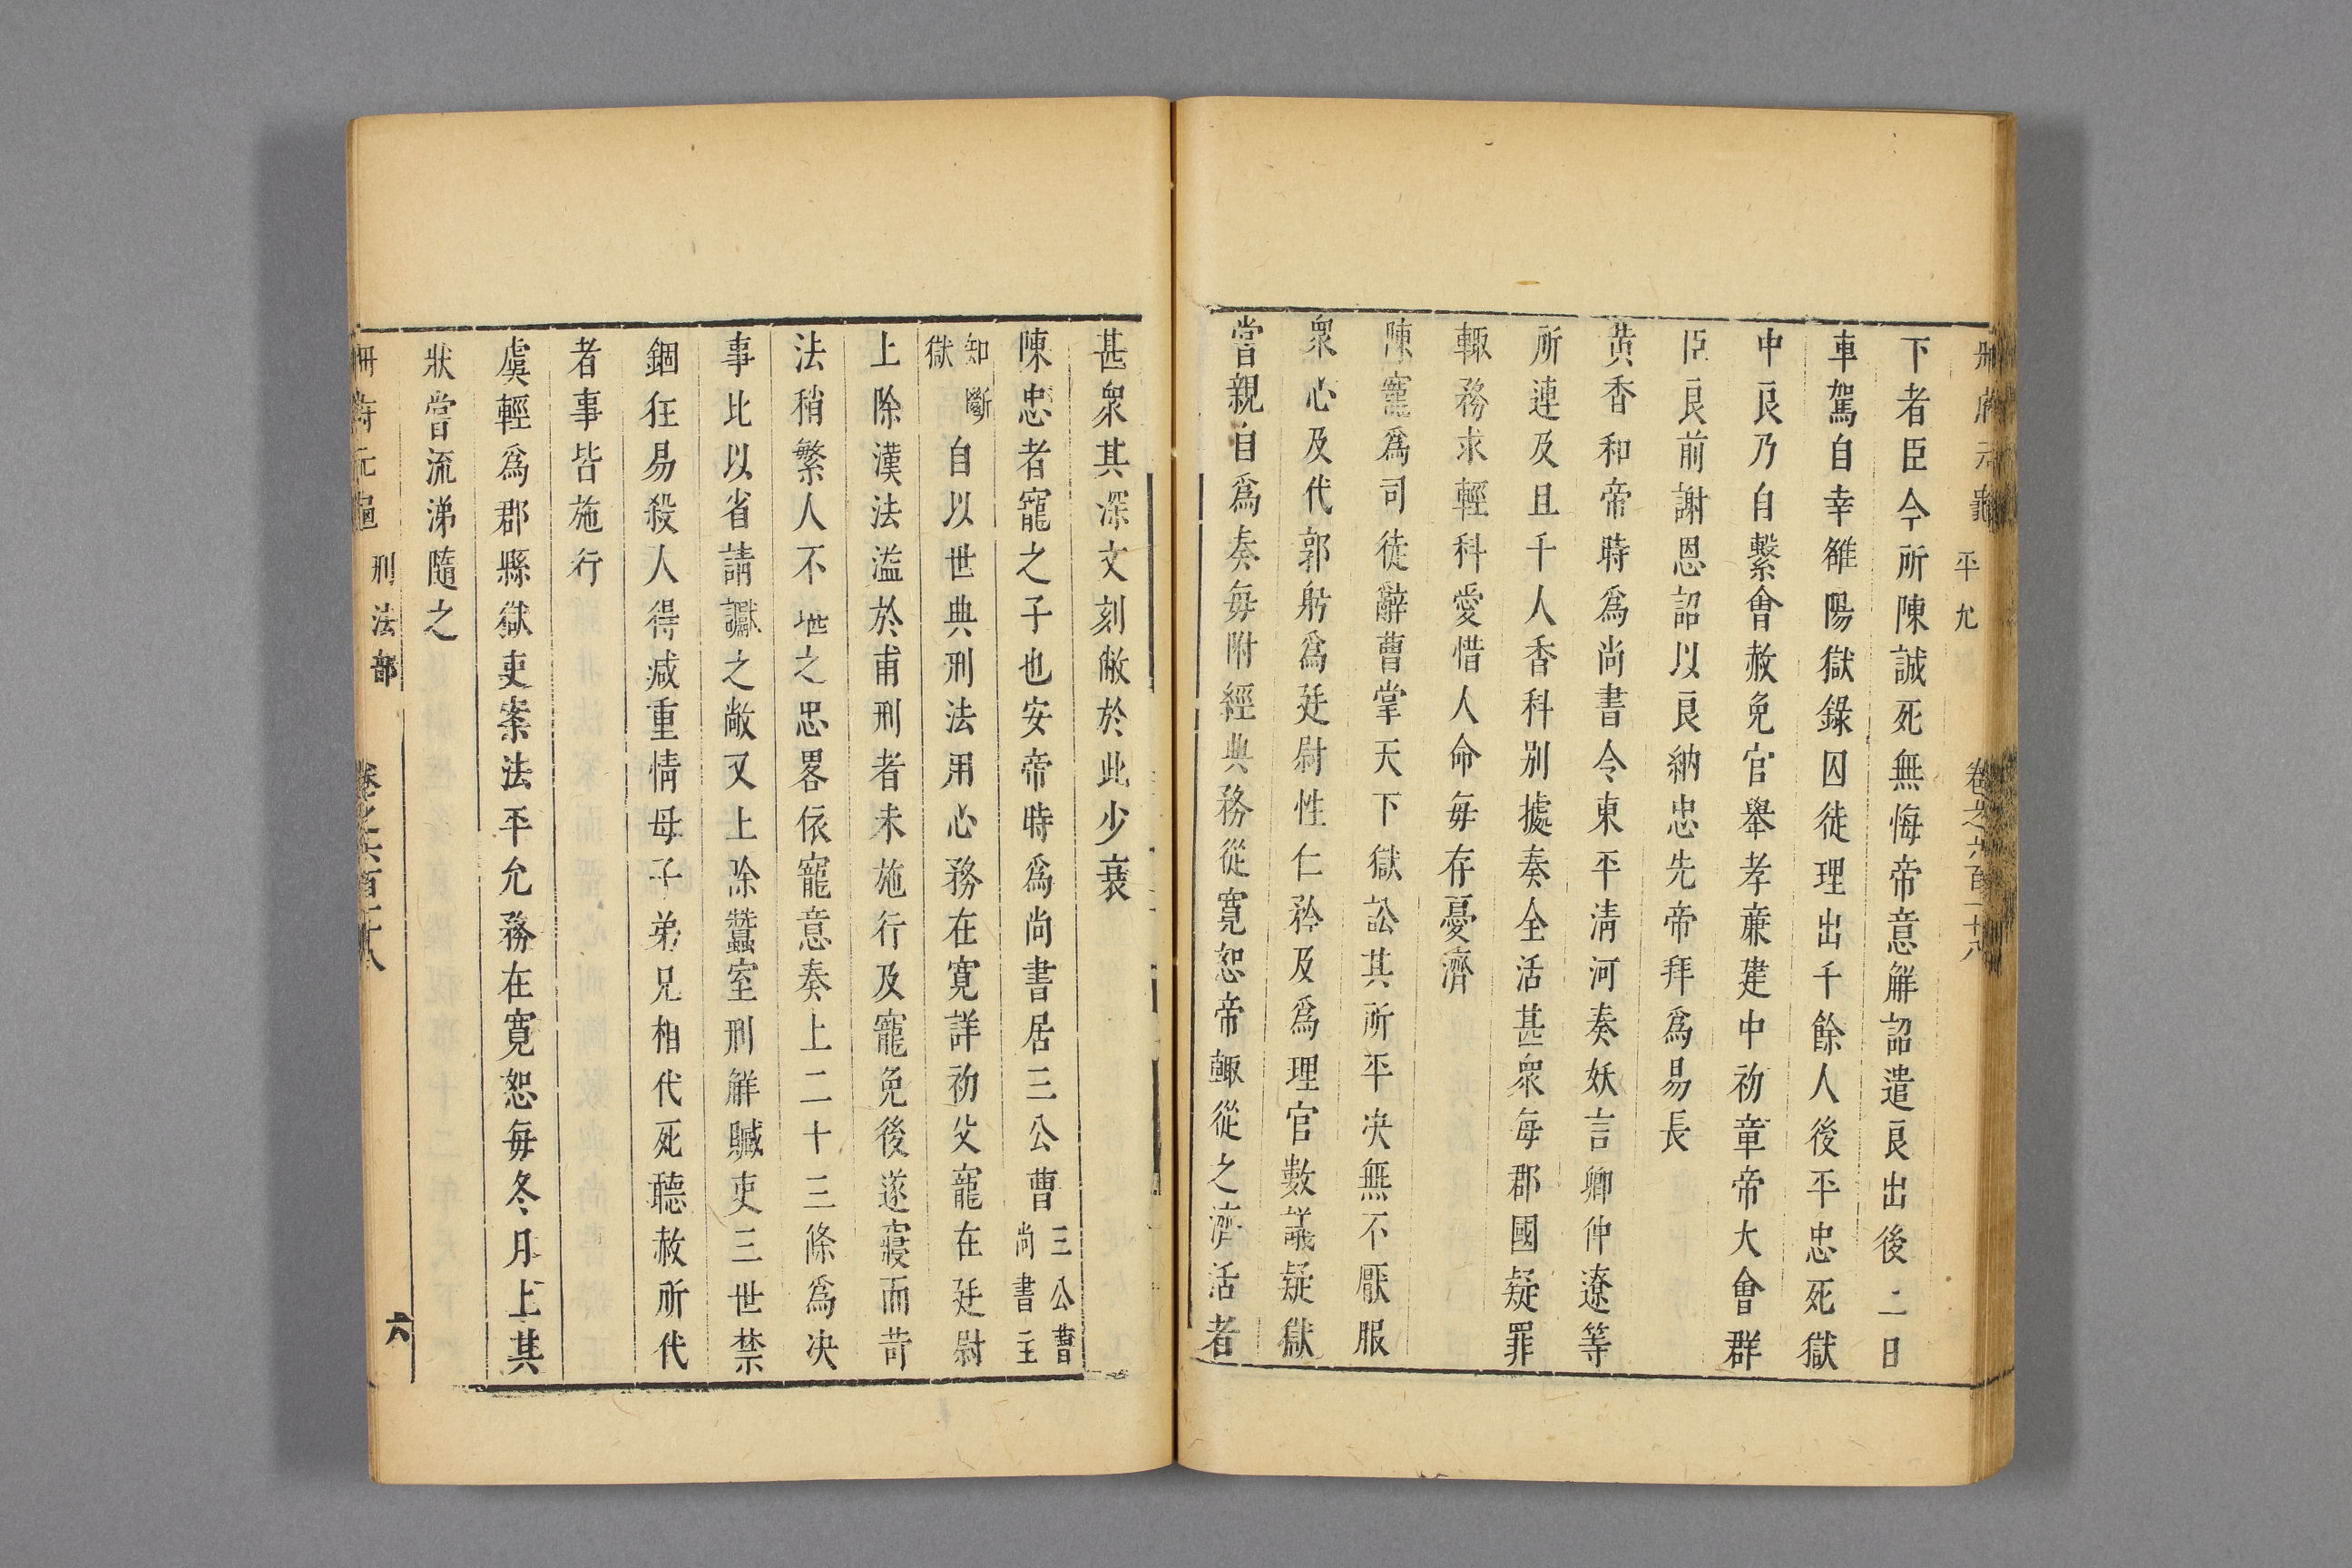 册府元龜 平允 卷之六百一十八
下者臣今所陳誠死無悔帝意解詔遣良出後二日
車駕自幸雒陽獄錄囚徒理出千餘人後平忠死獄
中良乃自繫會赦免官舉孝廉建中初章帝大會群
臣良前謝恩詔以良納忠先帝拜爲易長
黄香和帝時爲尚書令東平清河奏妖言卿仲遼等
所連及且千人香科别據奏全活甚衆每郡國疑罪
輙務求輕科愛惜人命每存憂濟
陳寵爲司徒辭曹掌天下獄訟其所平决無不厭服
衆心及代郭躬爲廷尉性仁矜及爲理官數議疑獄
當親自爲奏每附經典務從寬恕帝輙從之濟活者
甚衆其深文刻敝於此少衰
陳忠者寵之子也安帝時爲尚書居三公曹三公曹尚書主
知斷獄自以世典刑法用心務在寛詳初父寵在廷尉
上除漢法溢於甫刑者未施行及寵免後遂寢而苛
法稍繁人不堪之忠畧依寵意奏上二十三條爲决
事比以省請讞之敝又上除蠶室刑解贓吏三世禁
錮狂易殺人得减重情母子弟兄相代死聽赦所代
者事皆施行
虞輕爲郡縣獄吏案法平允務在寛恕每冬月上其
狀嘗流涕隨之
册府元龜 刑法部 卷之六百一十八 六